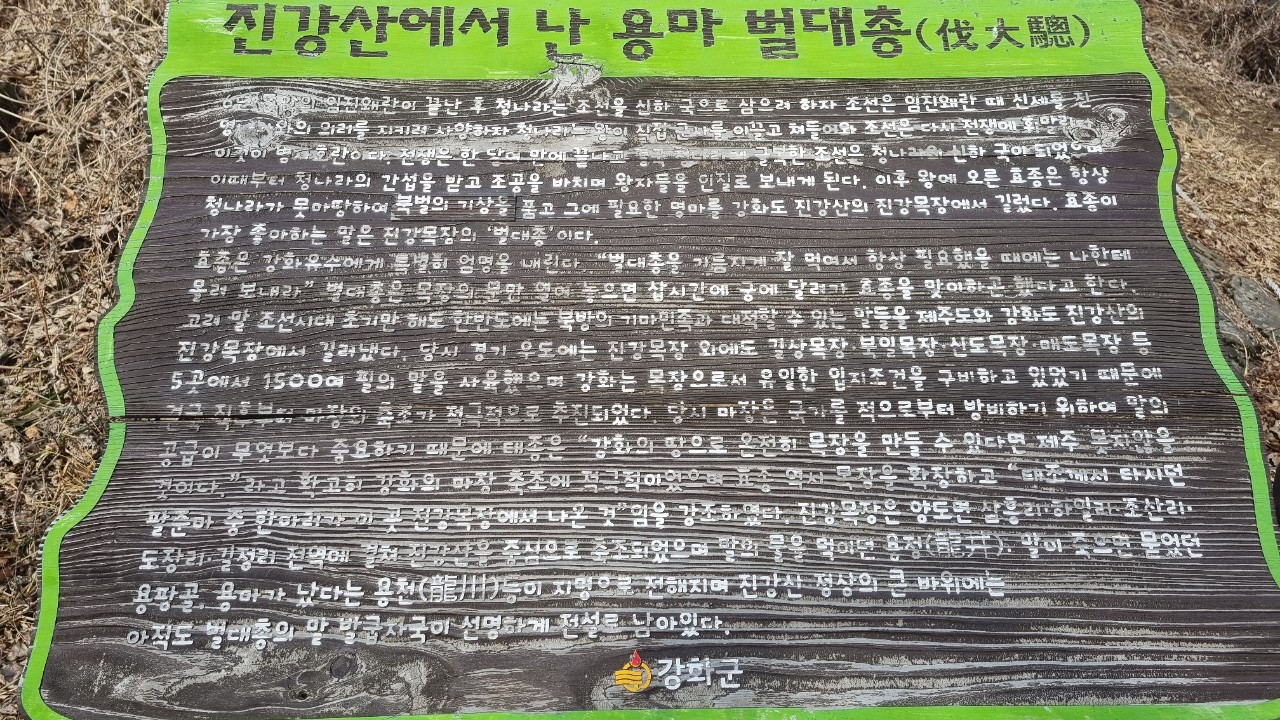 진강산에서 난 용마 벌대총(伐大驄)
임진왜란이 끝난 후 청나라는 조선을 신하 국으로 삼으려 하자 조선은 임진왜란 때 신세를 진
의리를 지키려 사양하자 청나라는 왕이 직접 군사를 이끌고 쳐들어와 조선은 다시 전쟁에 휘말린다.
이것이 병자호란이다. 전쟁은 한 달여 만에 끝나고 조선은 청나라의 신하 국이 되었으며
이때부터 청나라의 간섭을 받고 조공을 바치며 왕자들을 인질로 보내게 된다. 이후 왕에 오른 효종은 항상
청나라가 못마땅하여 북벌의 기상을 품고 그에 필요한 명마를 강화도 진강산의 진강목장에서 길렀다. 효종이
가장 좋아하는 말은 진강목장의 '벌대총'이다.
효종은 강화유수에게 특별히 엄명을 내린다. "벌대총을 기름지게 잘 먹여서 항상 필요했을 때에는 나한테
올려 보내라" 벌대총은 목장의 문만 열어 놓으면 삽시간에 궁에 달려가 효종을 맞이하곤 했다고 한다.
고려 말 조선시대 초기만 해도 한반도에는 북방의 기마민족과 대적할 수 있는 말들을 제주도와 강화도 진강산의
진강목장에서 길러냈다. 당시 경기 우도에는 진강목장 외에도 길상목장·북일목장·신도목장·매도목장 등
5곳에서 1500여 필의 말을 사육했으며 강화는 목장으로서 유일한 입지조건을 구비하고 있었기 때문에
건국 직후부터 마장의 축조가 적극적으로 추진되었다. 당시 마장은 국가를 적으로부터 방비하기 위하여 말의
공급이 무엇보다 중요하기 때문에 태종은 "강화의 땅으로 온전히 목장을 만들 수 있다면 제주 못지않을
것이다."라고 확고히 강화의 마장 축조에 적극적이었으며 효종 역시 목장을 확장하고 "태조께서 타시던
팔준마 중 한마리가 이 곳 진강목장에서 나온 것"임을 강조하였다. 진강목장은 양도면 삼흥리·하일리·조산리·
도장리·길정리 전역에 걸쳐 진강산을 중심으로 축조되었으며 말의 물을 먹이던 용정(龍井), 말이 죽으면 묻었던
용팡골, 용마가 났다는 용천(龍川)등이 지명으로 전해지며 진강산 정상의 큰 바위에는
아직도 벌대총의 말 발굽자국이 선명하게 전설로 남아있다.
강화군